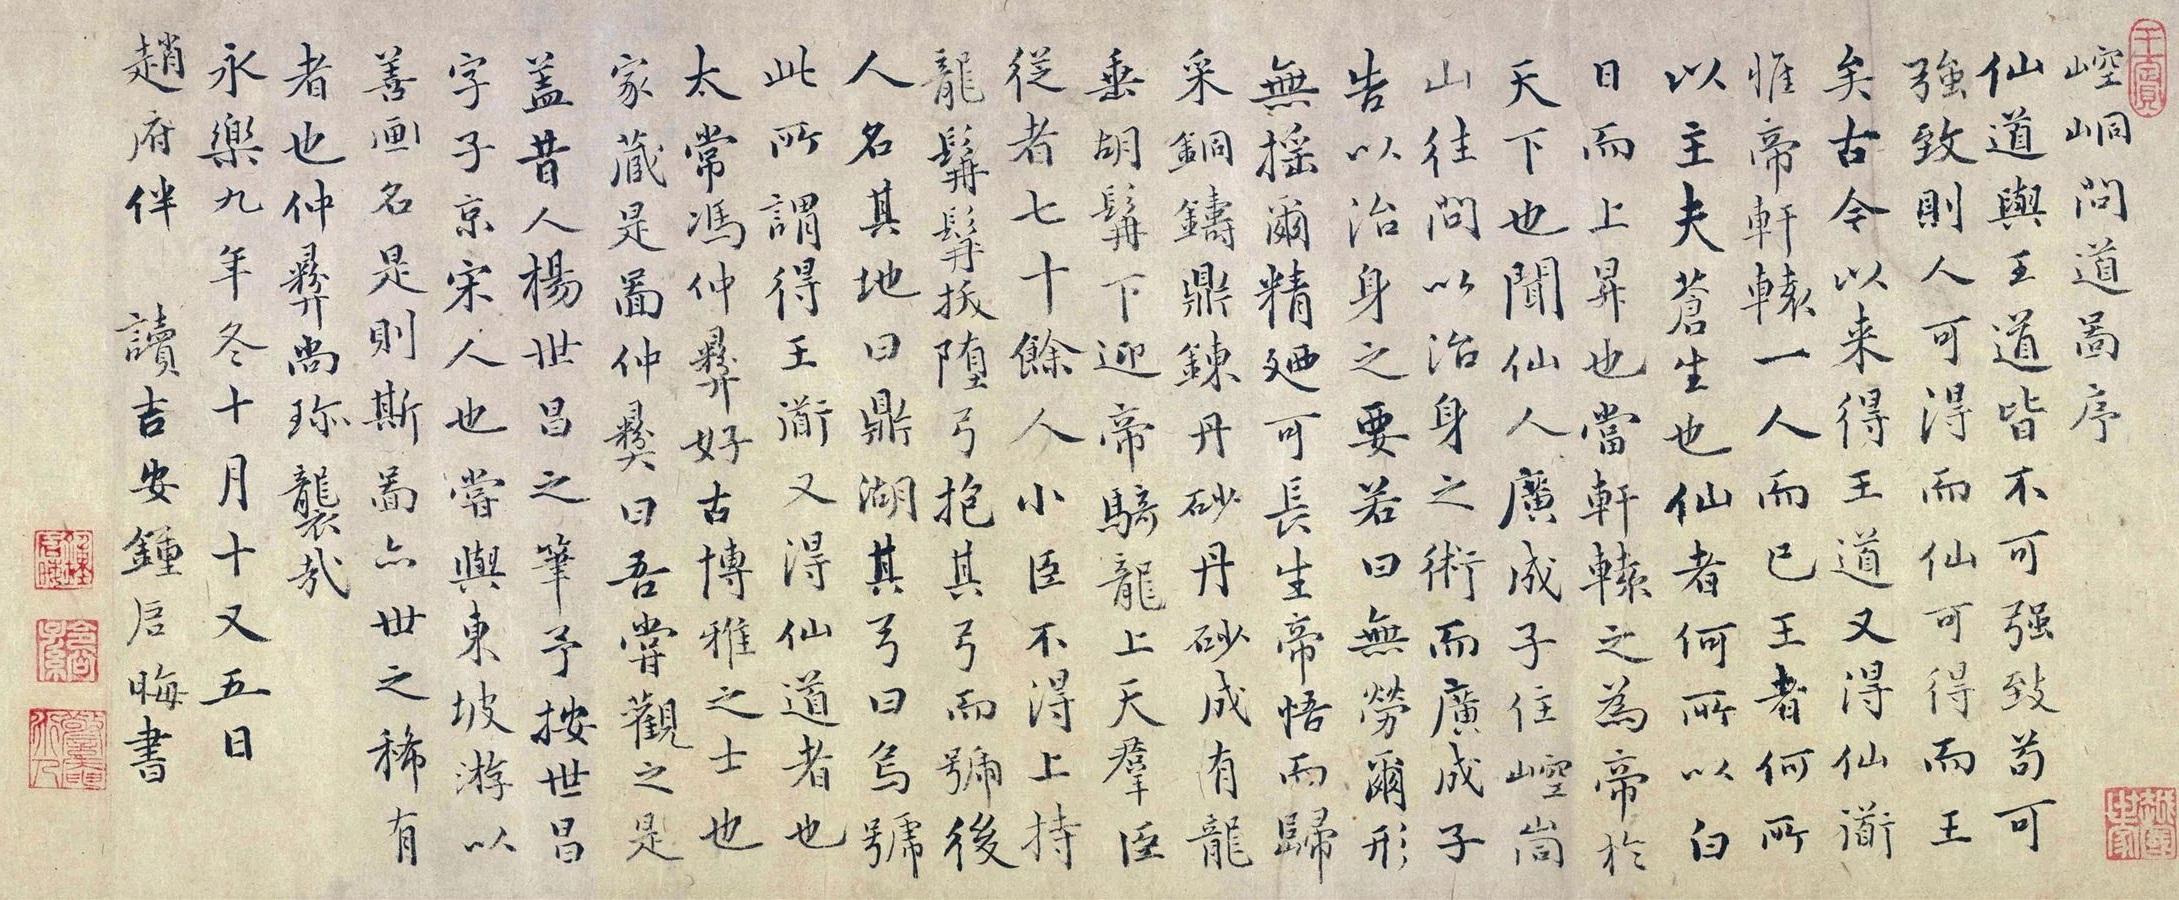 崆峒問道啚序
仙道與王道皆不可强致苟可
强致則人可得而仙可得而王
矣古今以来得王道又得仙衜
惟帝軒轅一人而已王者何所
以主夫蒼生也仙者何所以白
日而上昇也當軒轅之為帝於
天下也聞仙人廣成子住崆峝
山往問以治身之術而廣成子
告以治身之要若曰無勞爾形
無揺爾精廼可長生帝悟而歸
采銅鑄鼎鍊丹砂丹砂成有龍
垂胡髯下迎帝騎龍上天羣臣
従者七十餘人小臣不得上持
龍髯髯拔堕弓抱其弓而號後
人名其地曰鼎湖其弓曰烏號
此所謂得王衜又得仙道者也
太常馮仲彛好古博雅之士也
家蔵是啚仲彛曰吾甞觀之是
蓋昔人楊世昌之筆予按世昌
字子京宋人也甞與東坡游以
善画名是則斯啚亦世之稀有
者也仲彛尚珎襲哉
永樂九年冬十月十又五日
趙府伴 讀吉安鍾启晦書